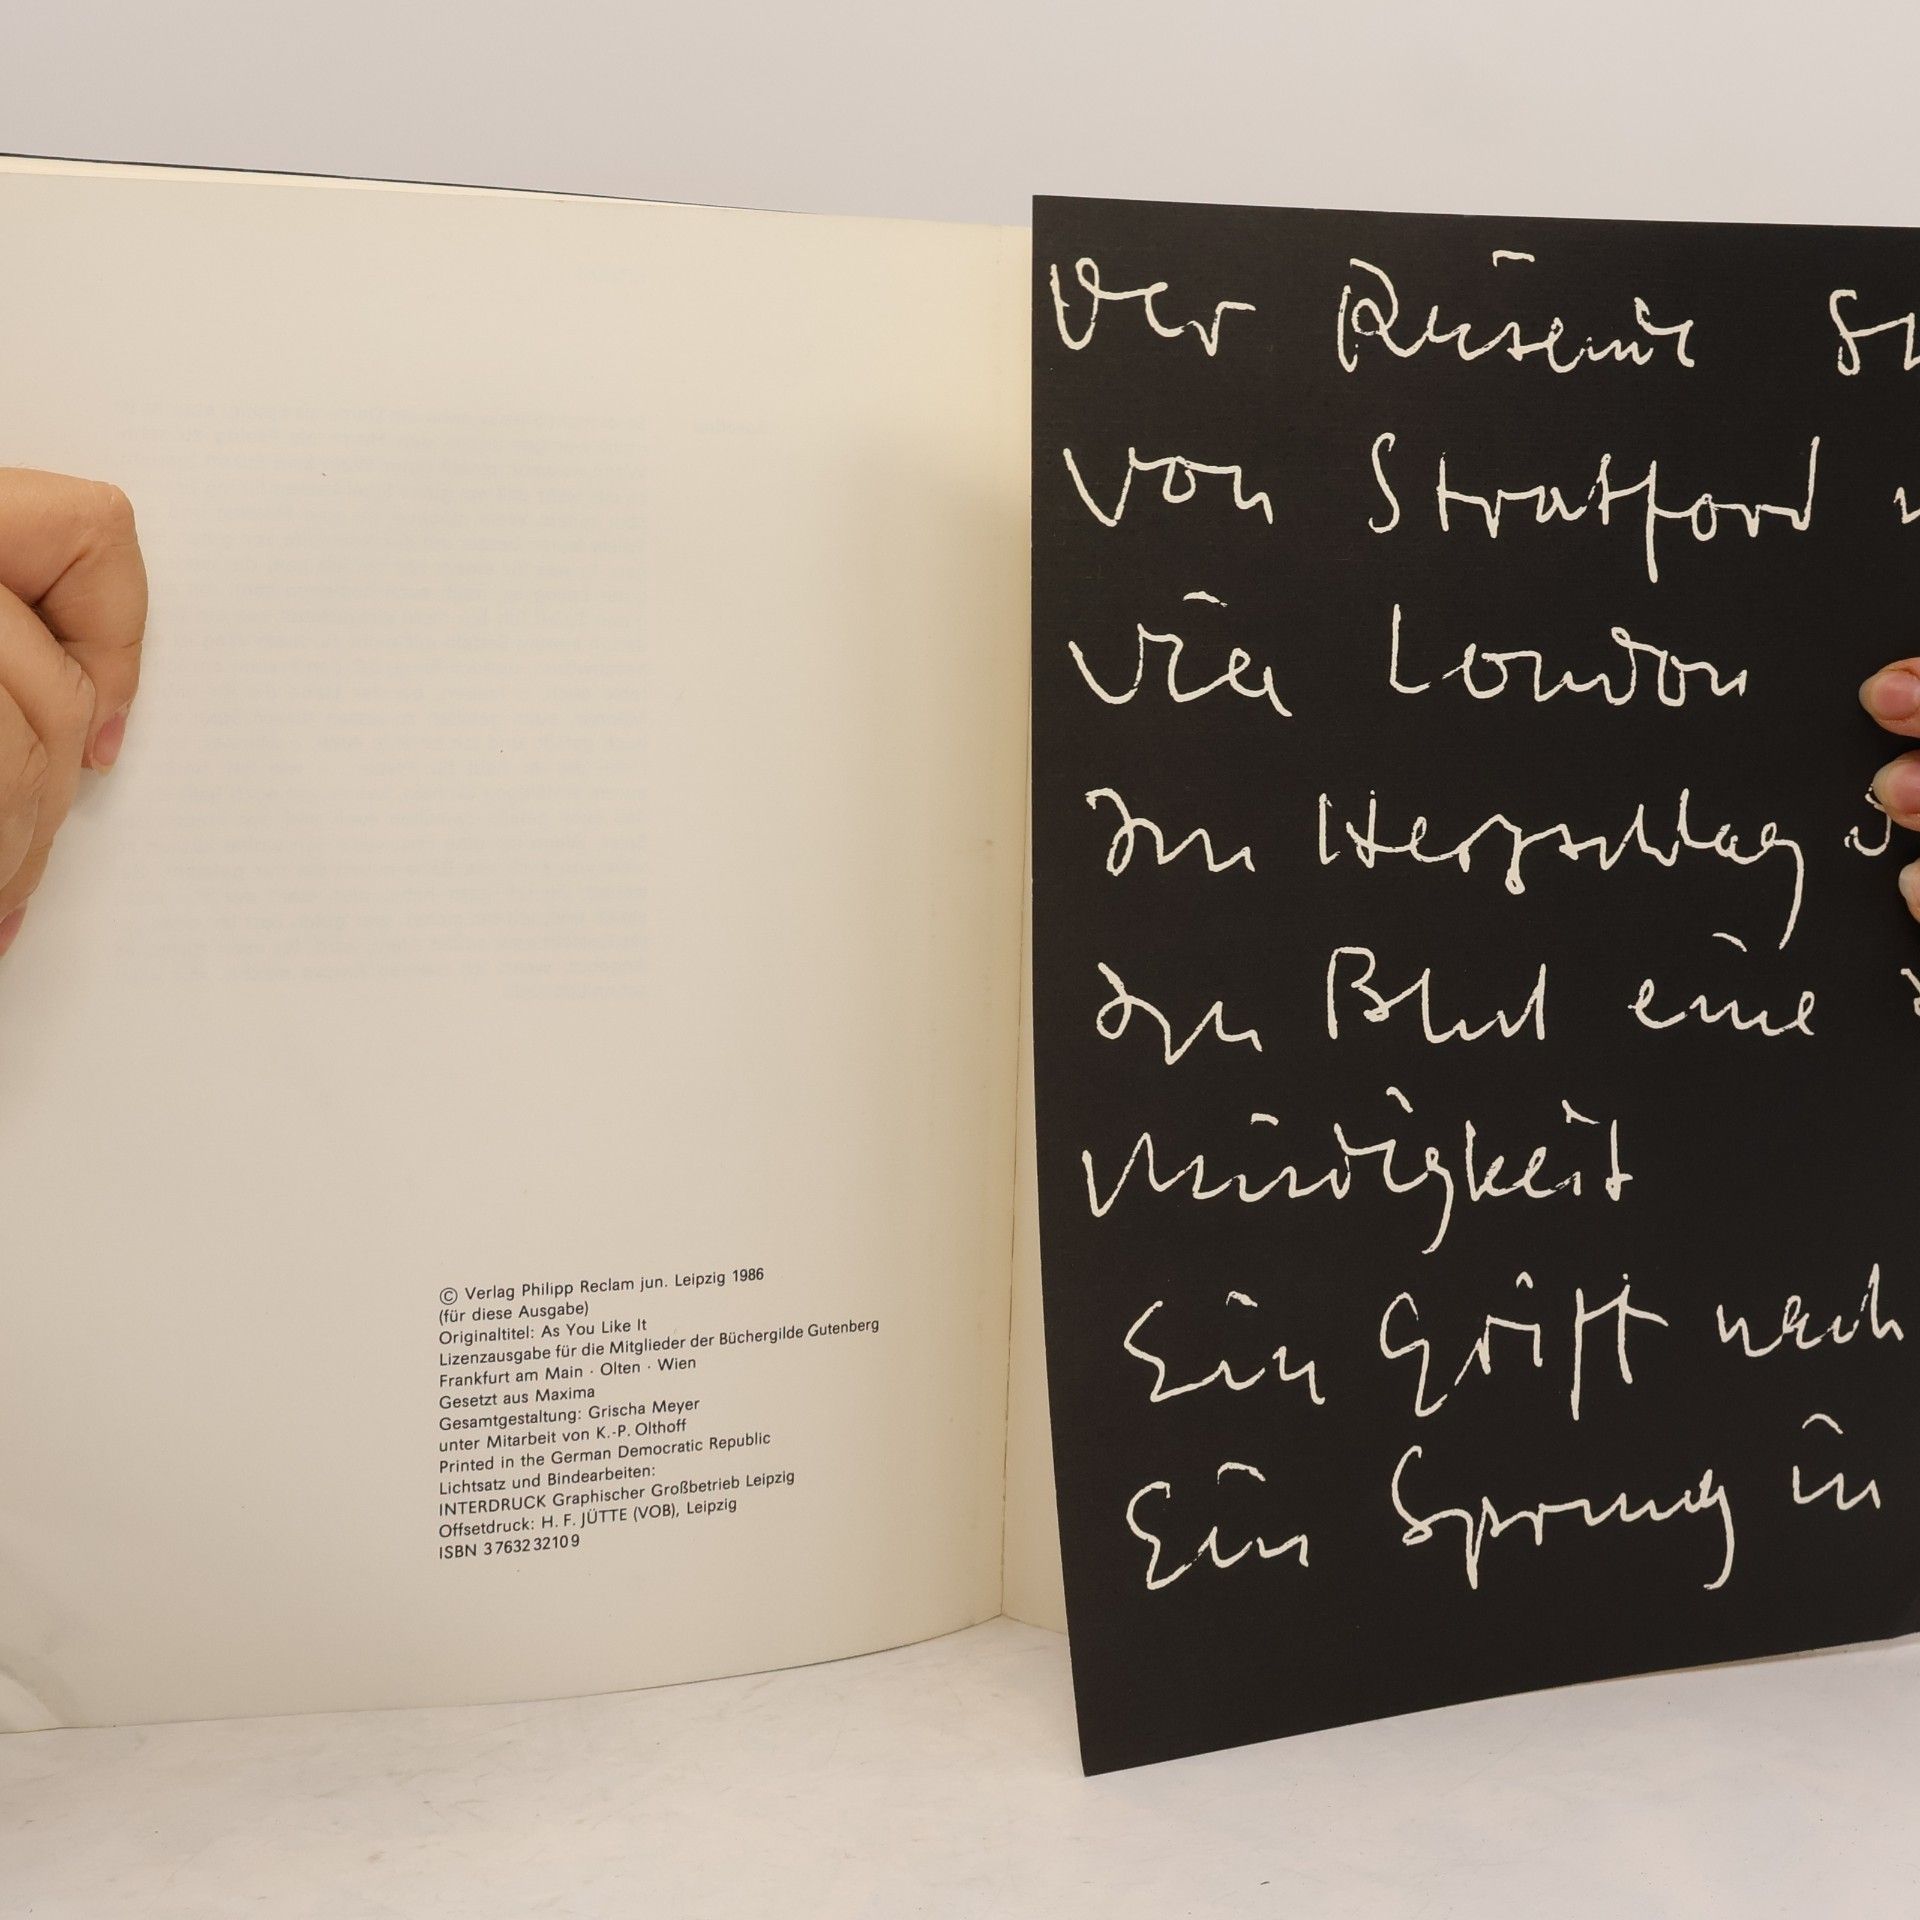 © Verlag Philipp Reclam jun. Leipzig 1986
(für diese Ausgabe)
Originaltitel: As You Like It
Lizenzausgabe für die Mitglieder der Büchergilde Gutenberg
Frankfurt am Main · Olten · Wien
Gesetzt aus Maxima
Gesamtgestaltung: Grischa Meyer
unter Mitarbeit von K.-P. Olthoff
Printed in the German Democratic Republic
Lichtsatz und Bindearbeiten:
INTERDRUCK Graphischer Großbetrieb Leipzig
Offsetdruck: H. F. JÜTTE (VOB), Leipzig
ISBN 3 7632 3210 9
Der Reisende
von Stratford
via London
Im Herzschlag
Im Blut eine
Müdigkeit
Ein Griff nach
Ein Sprung in